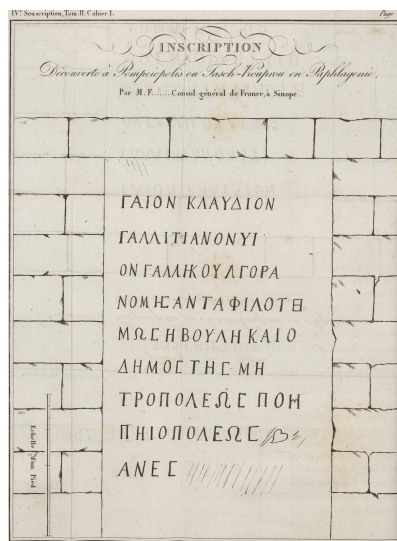 IVᵉ. Souscription, Tom. II. Cahier I.
Page
INSCRIPTION
Découverte à Pompeiopolis ou Tasch-Kouprou en Paphlagonie,
Par M. F...... Consul général de France, à Sinope.
ΓΑΙΟΝ ΚΛΑΥΔΙΟΝ
ΓΑΛΛΙΤΙΑΝΟΝΥΙ
ΟΝΓΑΛΛΙΚΟΥΑΓΟΡΑ
ΝΟΜΗϹΑΝΤΑΦΙΛΟΤΕΙ
ΜΩϹΗΒΟΥΛΗΚΑΙΟ
ΔΗΜΟϹΤΗϹ ΜΗ
ΤΡΟΠΟΛΕΩϹ ΠΟΜ
ΠΗΙΟΠΟΛΕΩϹ
ΑΝΕϹ
Echelle d'un Pied